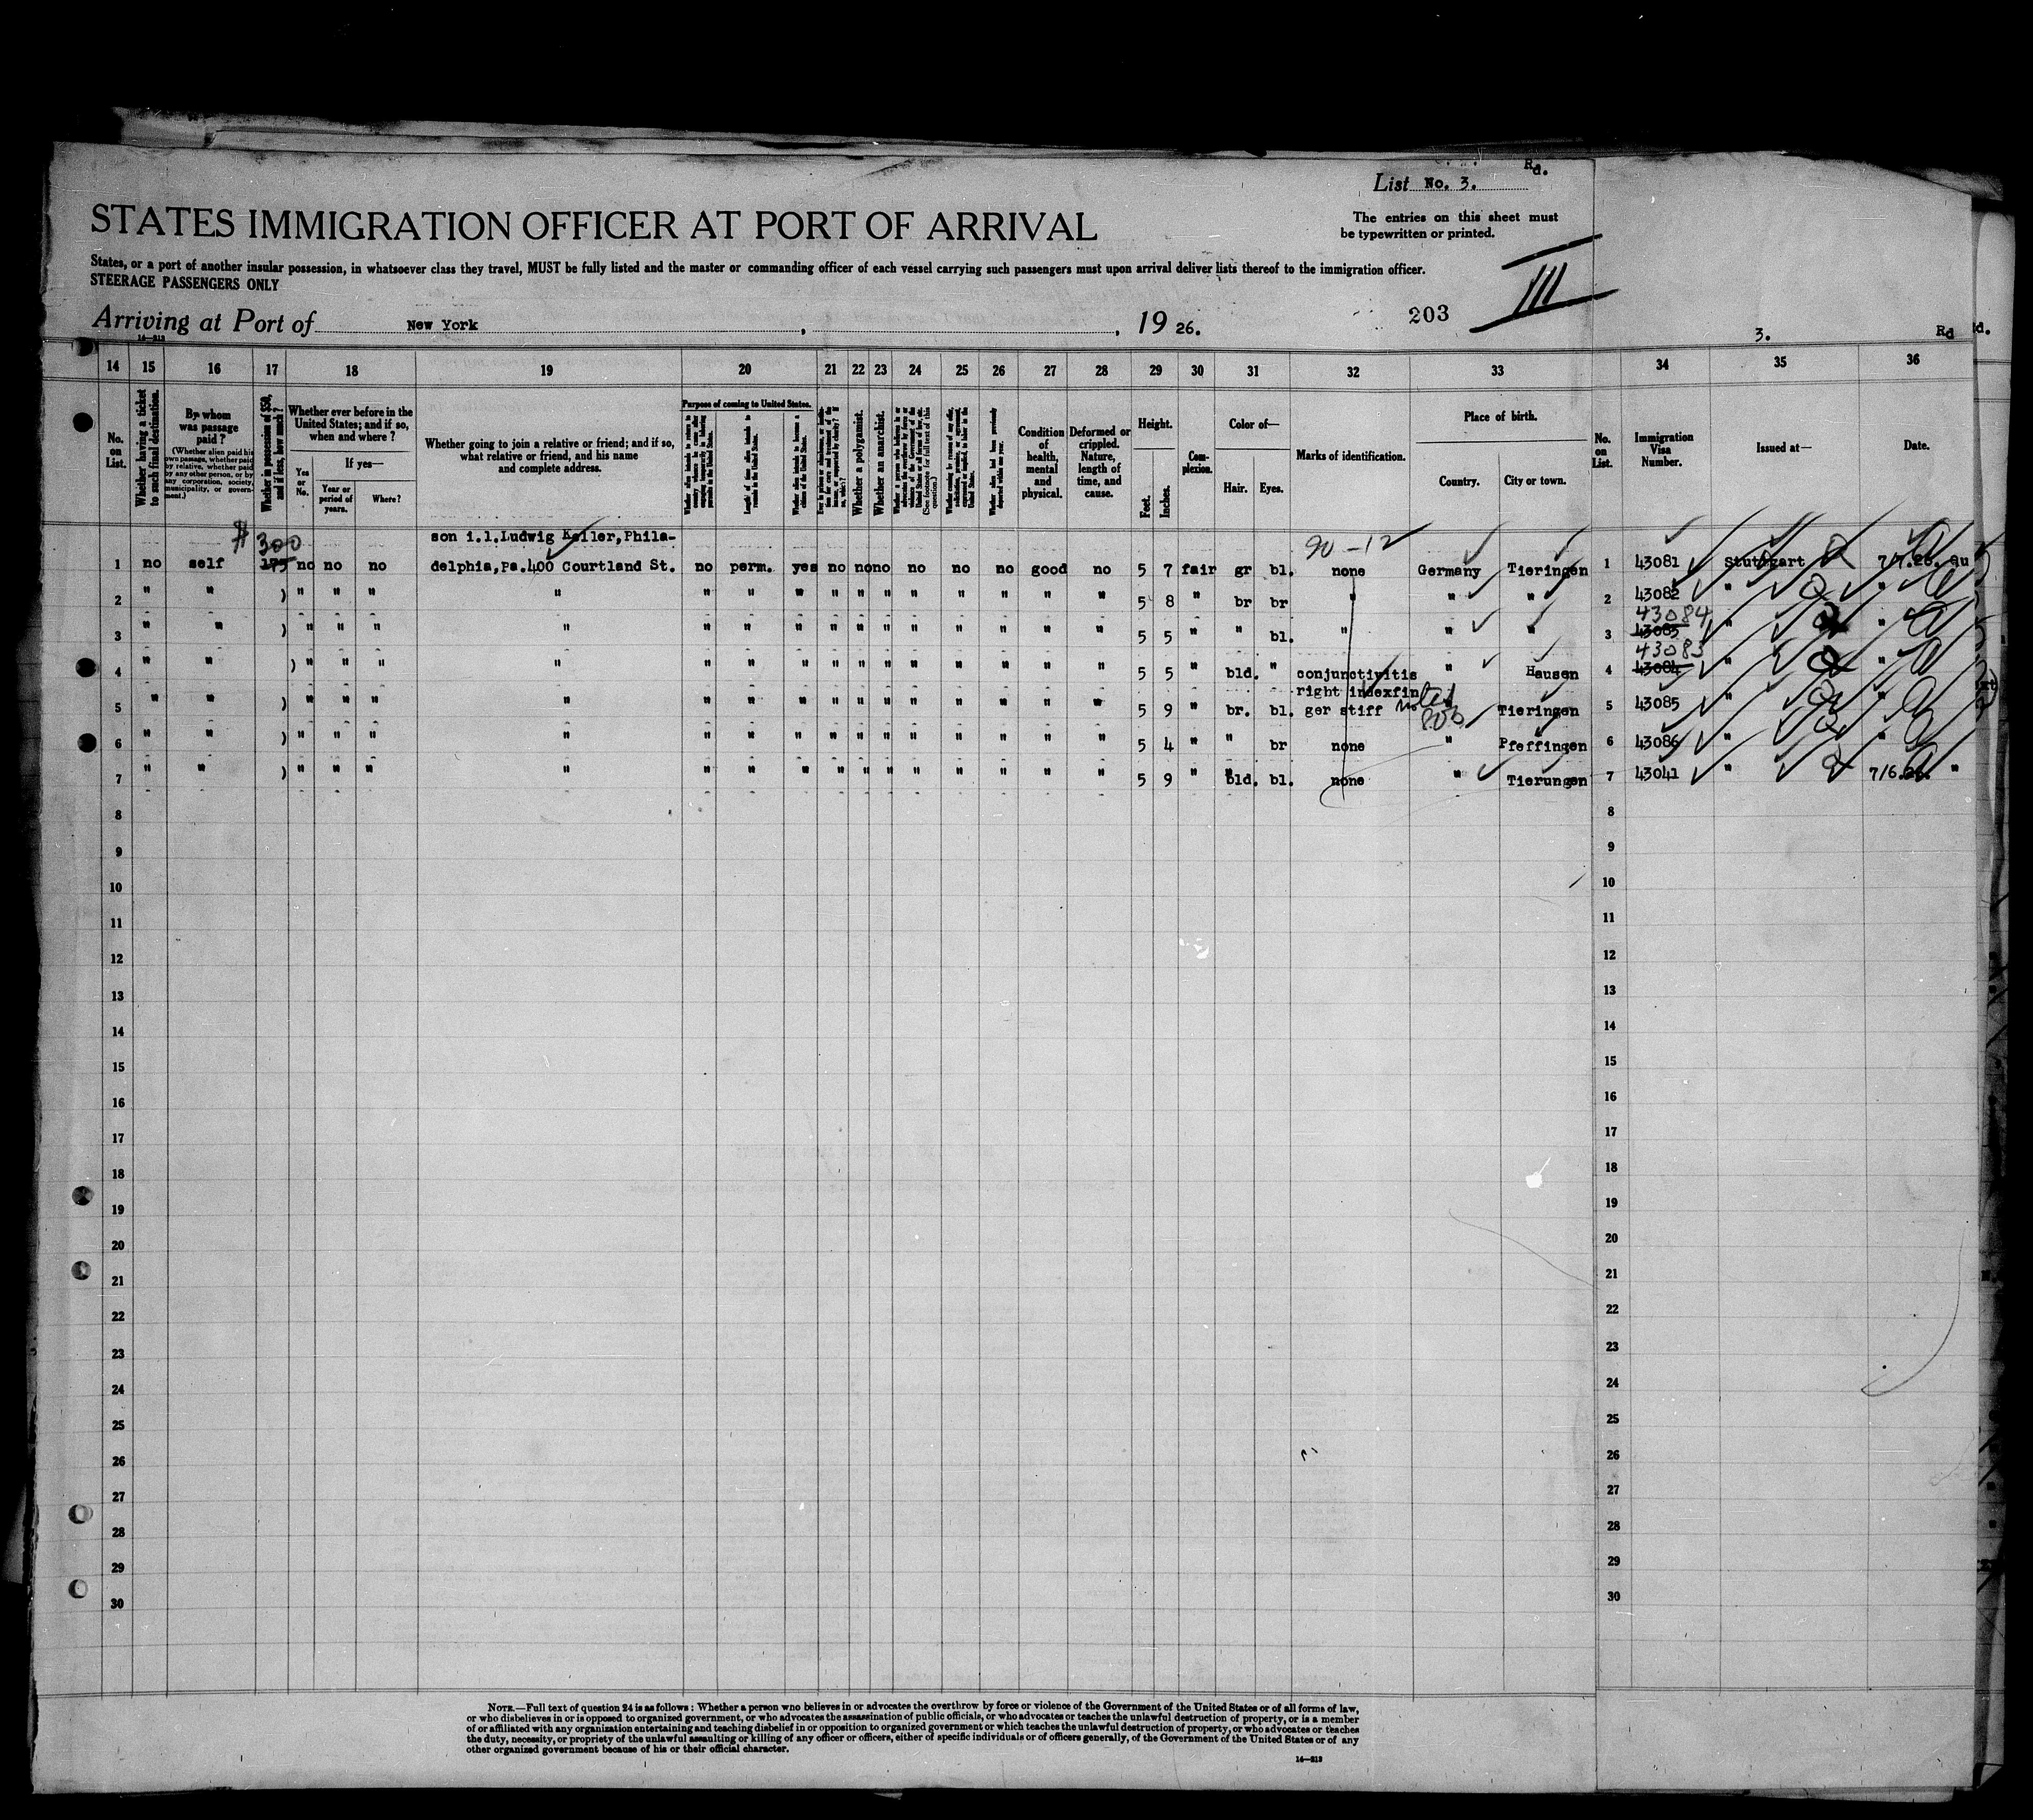 Rd.
List No. 3.
STATES IMMIGRATION OFFICER AT PORT OF ARRIVAL
The entries on this sheet must
be typewritten or printed.
States, or a port of another insular possession, in whatsoever class they travel, MUST be fully listed and the master or commanding officer of each vessel carrying such passengers must upon arrival deliver lists thereof to the immigration officer.
STEERAGE PASSENGERS ONLY
III
Arriving at Port of New York, , 19 26. 203
3. Rd
14 15 16 17 18 19 20 21 22 23 24 25 26 27 28 29 30 31 32 33 34 35 36
No. on List.
Whether having a ticket to such final destination.
By whom was passage paid?
(Whether alien paid his own passage, whether paid by relative, whether paid by any other person, or by any corporation, society, municipality, or government.)
Whether in possession of $50, and if less, how much?
Whether ever before in the United States; and if so, when and where?
Yes or No.
If yes—
Year or period of years.
Where?
Whether going to join a relative or friend; and if so, what relative or friend, and his name and complete address.
Purpose of coming to United States.
Length of time alien intends to remain in the United States.
Whether alien intends to become a citizen of the United States.
Whether a polygamist.
Whether an anarchist.
Condition of health, mental and physical.
Deformed or crippled. Nature, length of time, and cause.
Height.
Feet.
Inches.
Complexion.
Color of—
Hair.
Eyes.
Marks of identification.
Place of birth.
Country.
City or town.
No. on List.
Immigration Visa Number.
Issued at—
Date.
$ 300 son i.l.Ludwig Keller,Phila- 90-12
1 no self 175 no no no delphia,Pa.400 Courtland St. no perm. yes no no no no no no good no 5 7 fair gr bl. none Germany Tieringen 1 43081 Stuttgart 7/7.26. au
2 " " ) " " " " " " " " " " " " " " " 5 8 " br br " " " 2 43082 " "
43084
3 " " ) " " " " " " " " " " " " " " " 5 5 " " bl. " " " 3 43083 " "
43083
4 " " ) " " " " " " " " " " " " " " " 5 5 " bld. " conjunctivitis " Hausen 4 43084 " "
right indexfin
5 " " ) " " " " " " " " " " " " " " " 5 9 " br. bl. ger stiff Tieringen 5 43085 " "
6 " " ) " " " " " " " " " " " " " " " 5 4 " " br none " Pfeffingen 6 43086 " "
7 " " ) " " " " " " " " " " " " " " " 5 9 " bld. bl. none " Tierungen 7 43041 " 7/6.26. "
8 8
9 9
10 10
11 11
12 12
13 13
14 14
15 15
16 16
17 17
18 18
19 19
20 20
21 21
22 22
23 23
24 24
25 25
26 26
27 27
28 28
29 29
30 30
NOTE.—Full text of question 24 is as follows: Whether a person who believes in or advocates the overthrow by force or violence of the Government of the United States or of all forms of law,
or who disbelieves in or is opposed to organized government, or who advocates the assassination of public officials, or who advocates or teaches the unlawful destruction of property, or is a member
of or affiliated with any organization entertaining and teaching disbelief in or opposition to organized government or which teaches the unlawful destruction of property, or who advocates or teaches
the duty, necessity, or propriety of the unlawful assaulting or killing of any officer or officers, either of specific individuals or of officers generally, of the Government of the United States or of any
other organized government because of his or their official character.
14—213